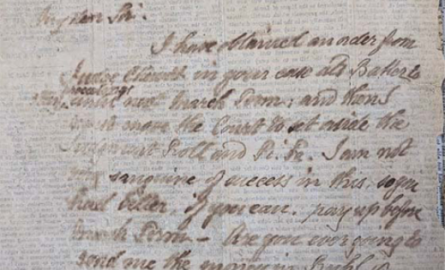 My dear Sir.
I have obtained an order from
Judge Chewett in your case ats
proceedings
stay until next March Term, and then I
must move the Court to set aside the
Judgment Roll and Fi. Fa. I am not
very sanguine of success in this, so you
had better, if you can pay up before
March Term — Are you ever going to
send me the